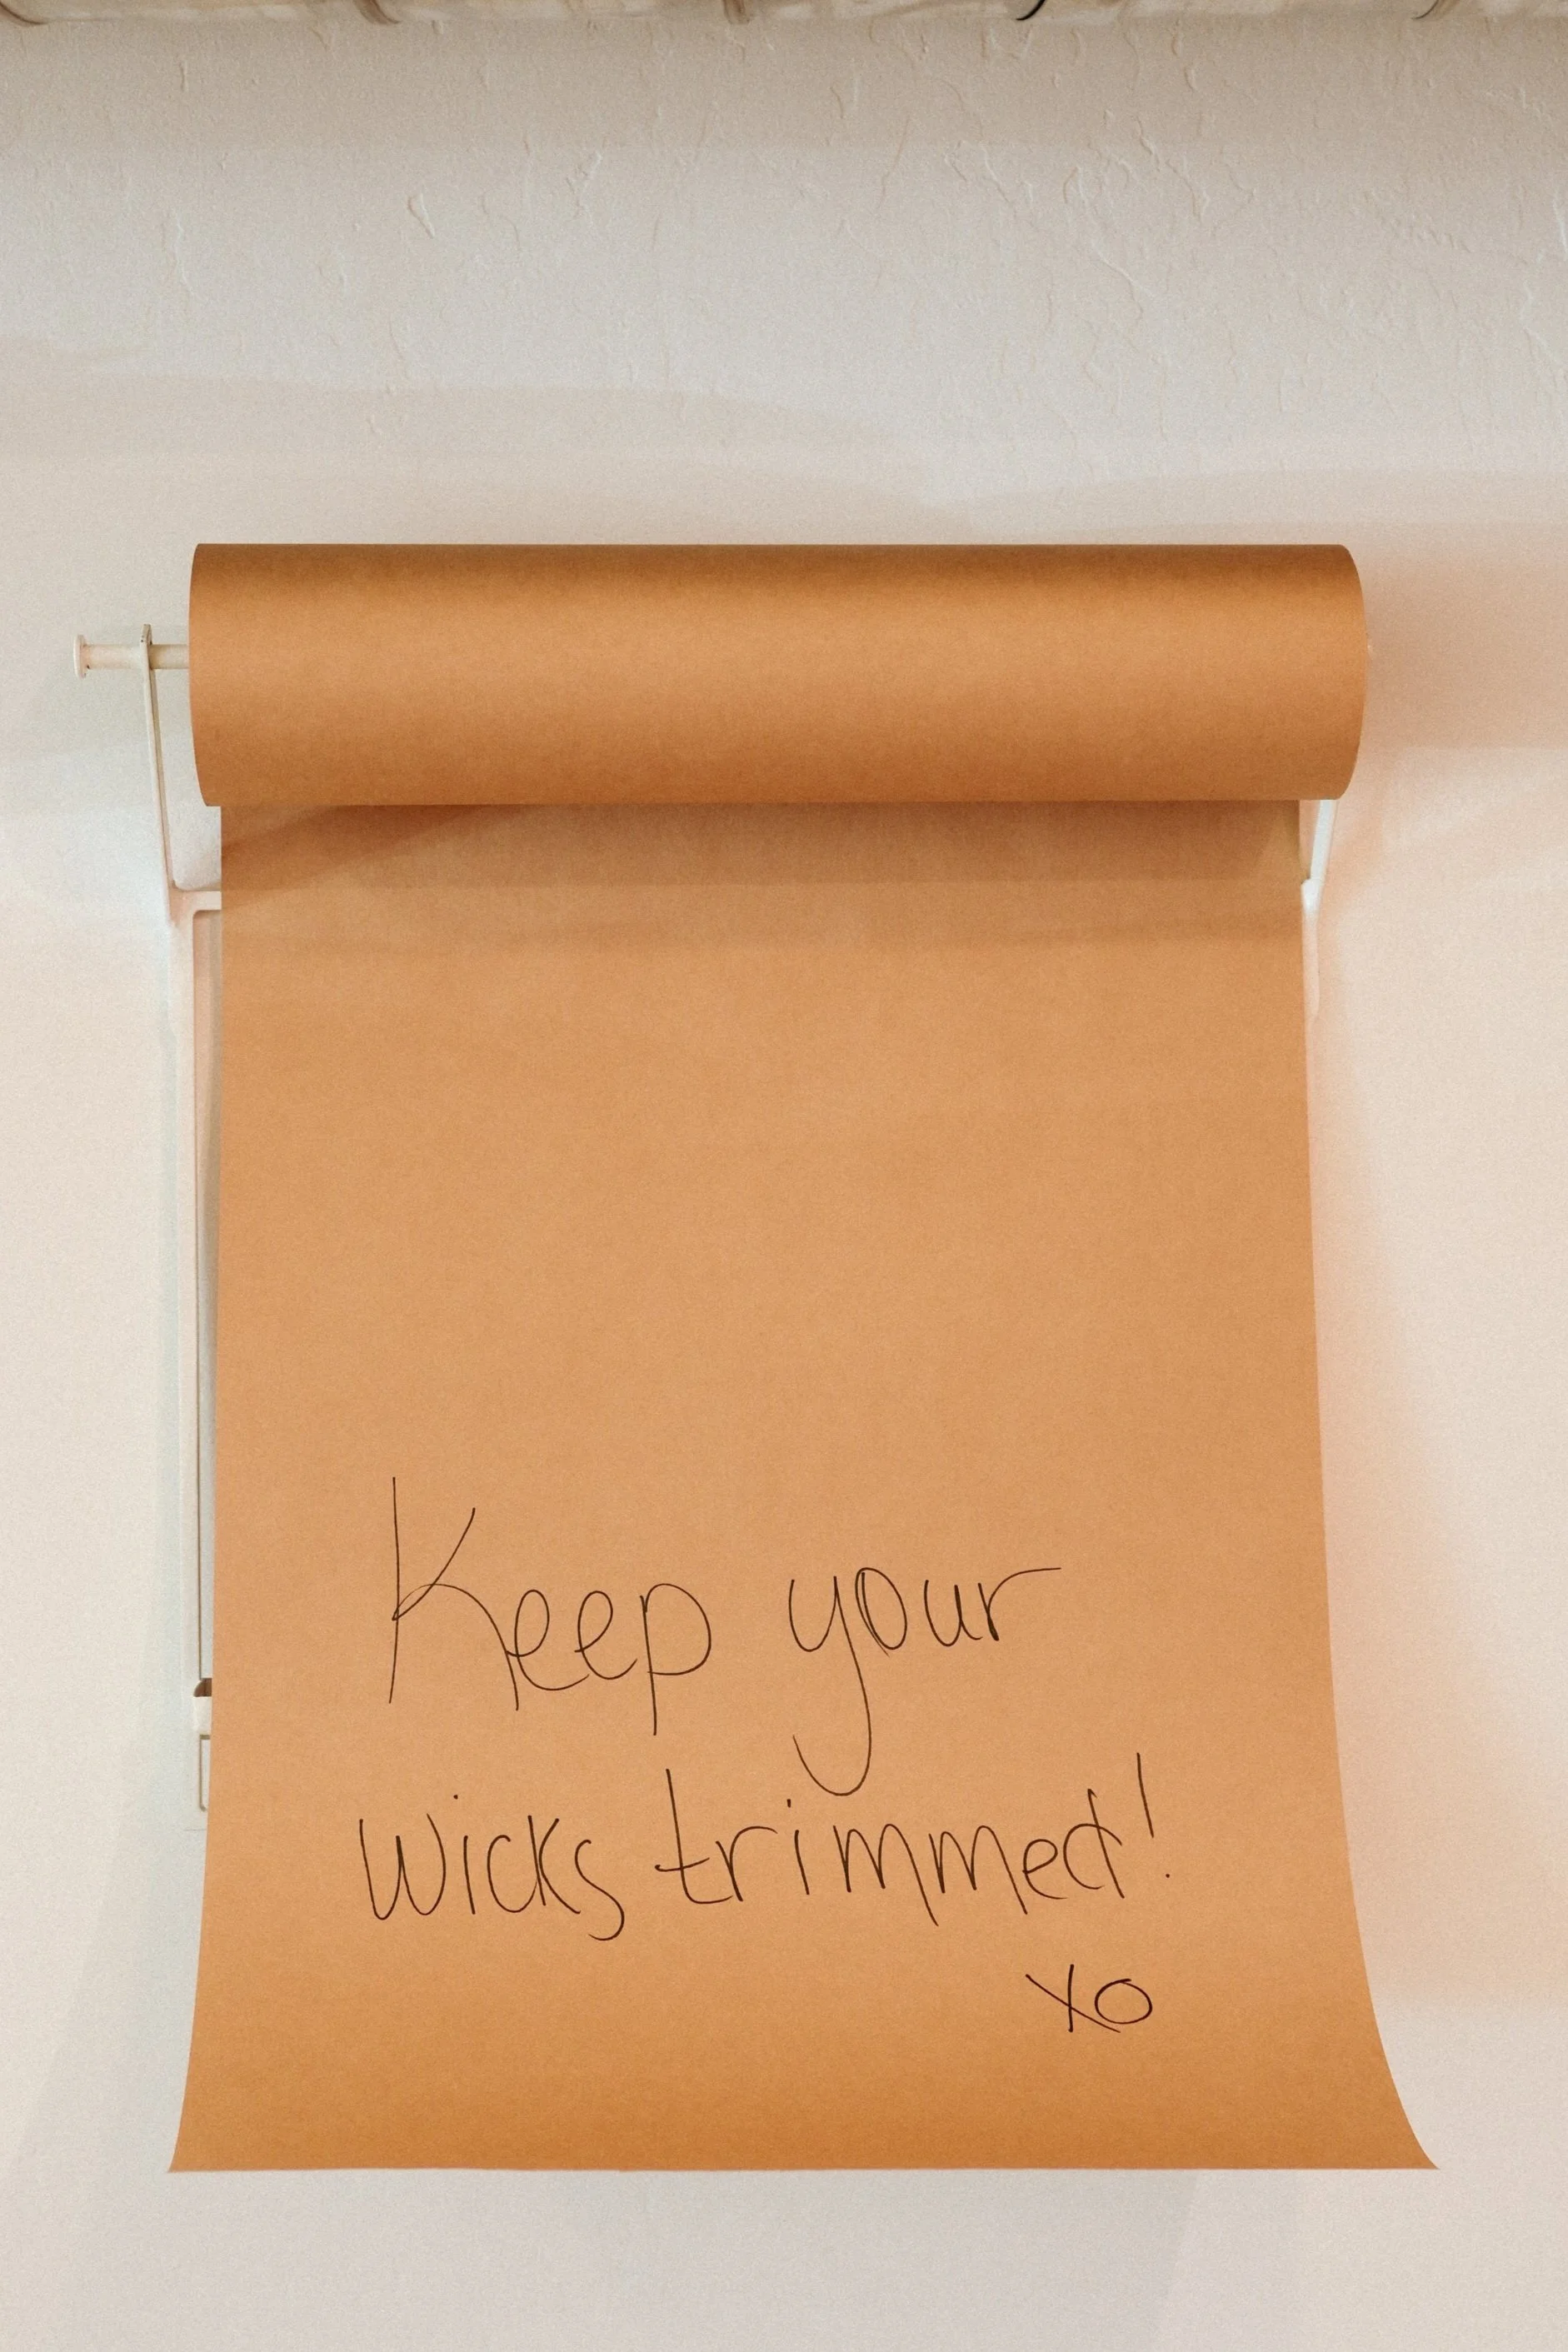 Keep your
wicks trimmed!
xo